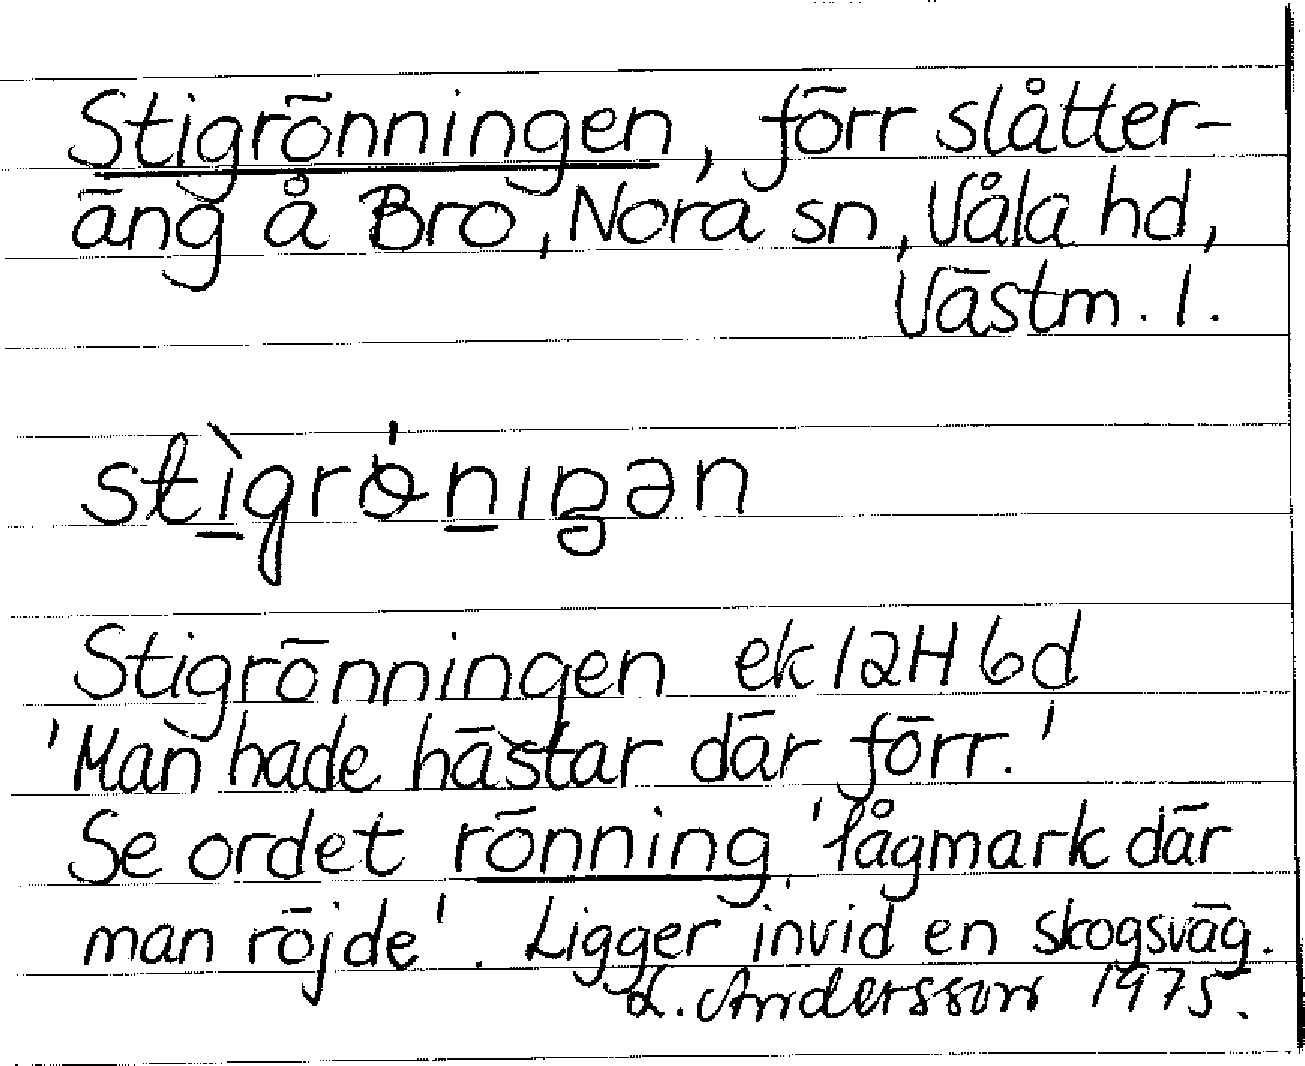 Stigrönningen, förr slåtter-
äng å Bro, Nora sn, Våla hd,
Västm. l.
stìgrǿnıŋən
Stigrönningen ek 12H 6d
'Man hade hästar där förr.'
Se ordet rönning, 'lågmark där
man röjde'. Ligger invid en skogsväg.
L. Andersson 1975.